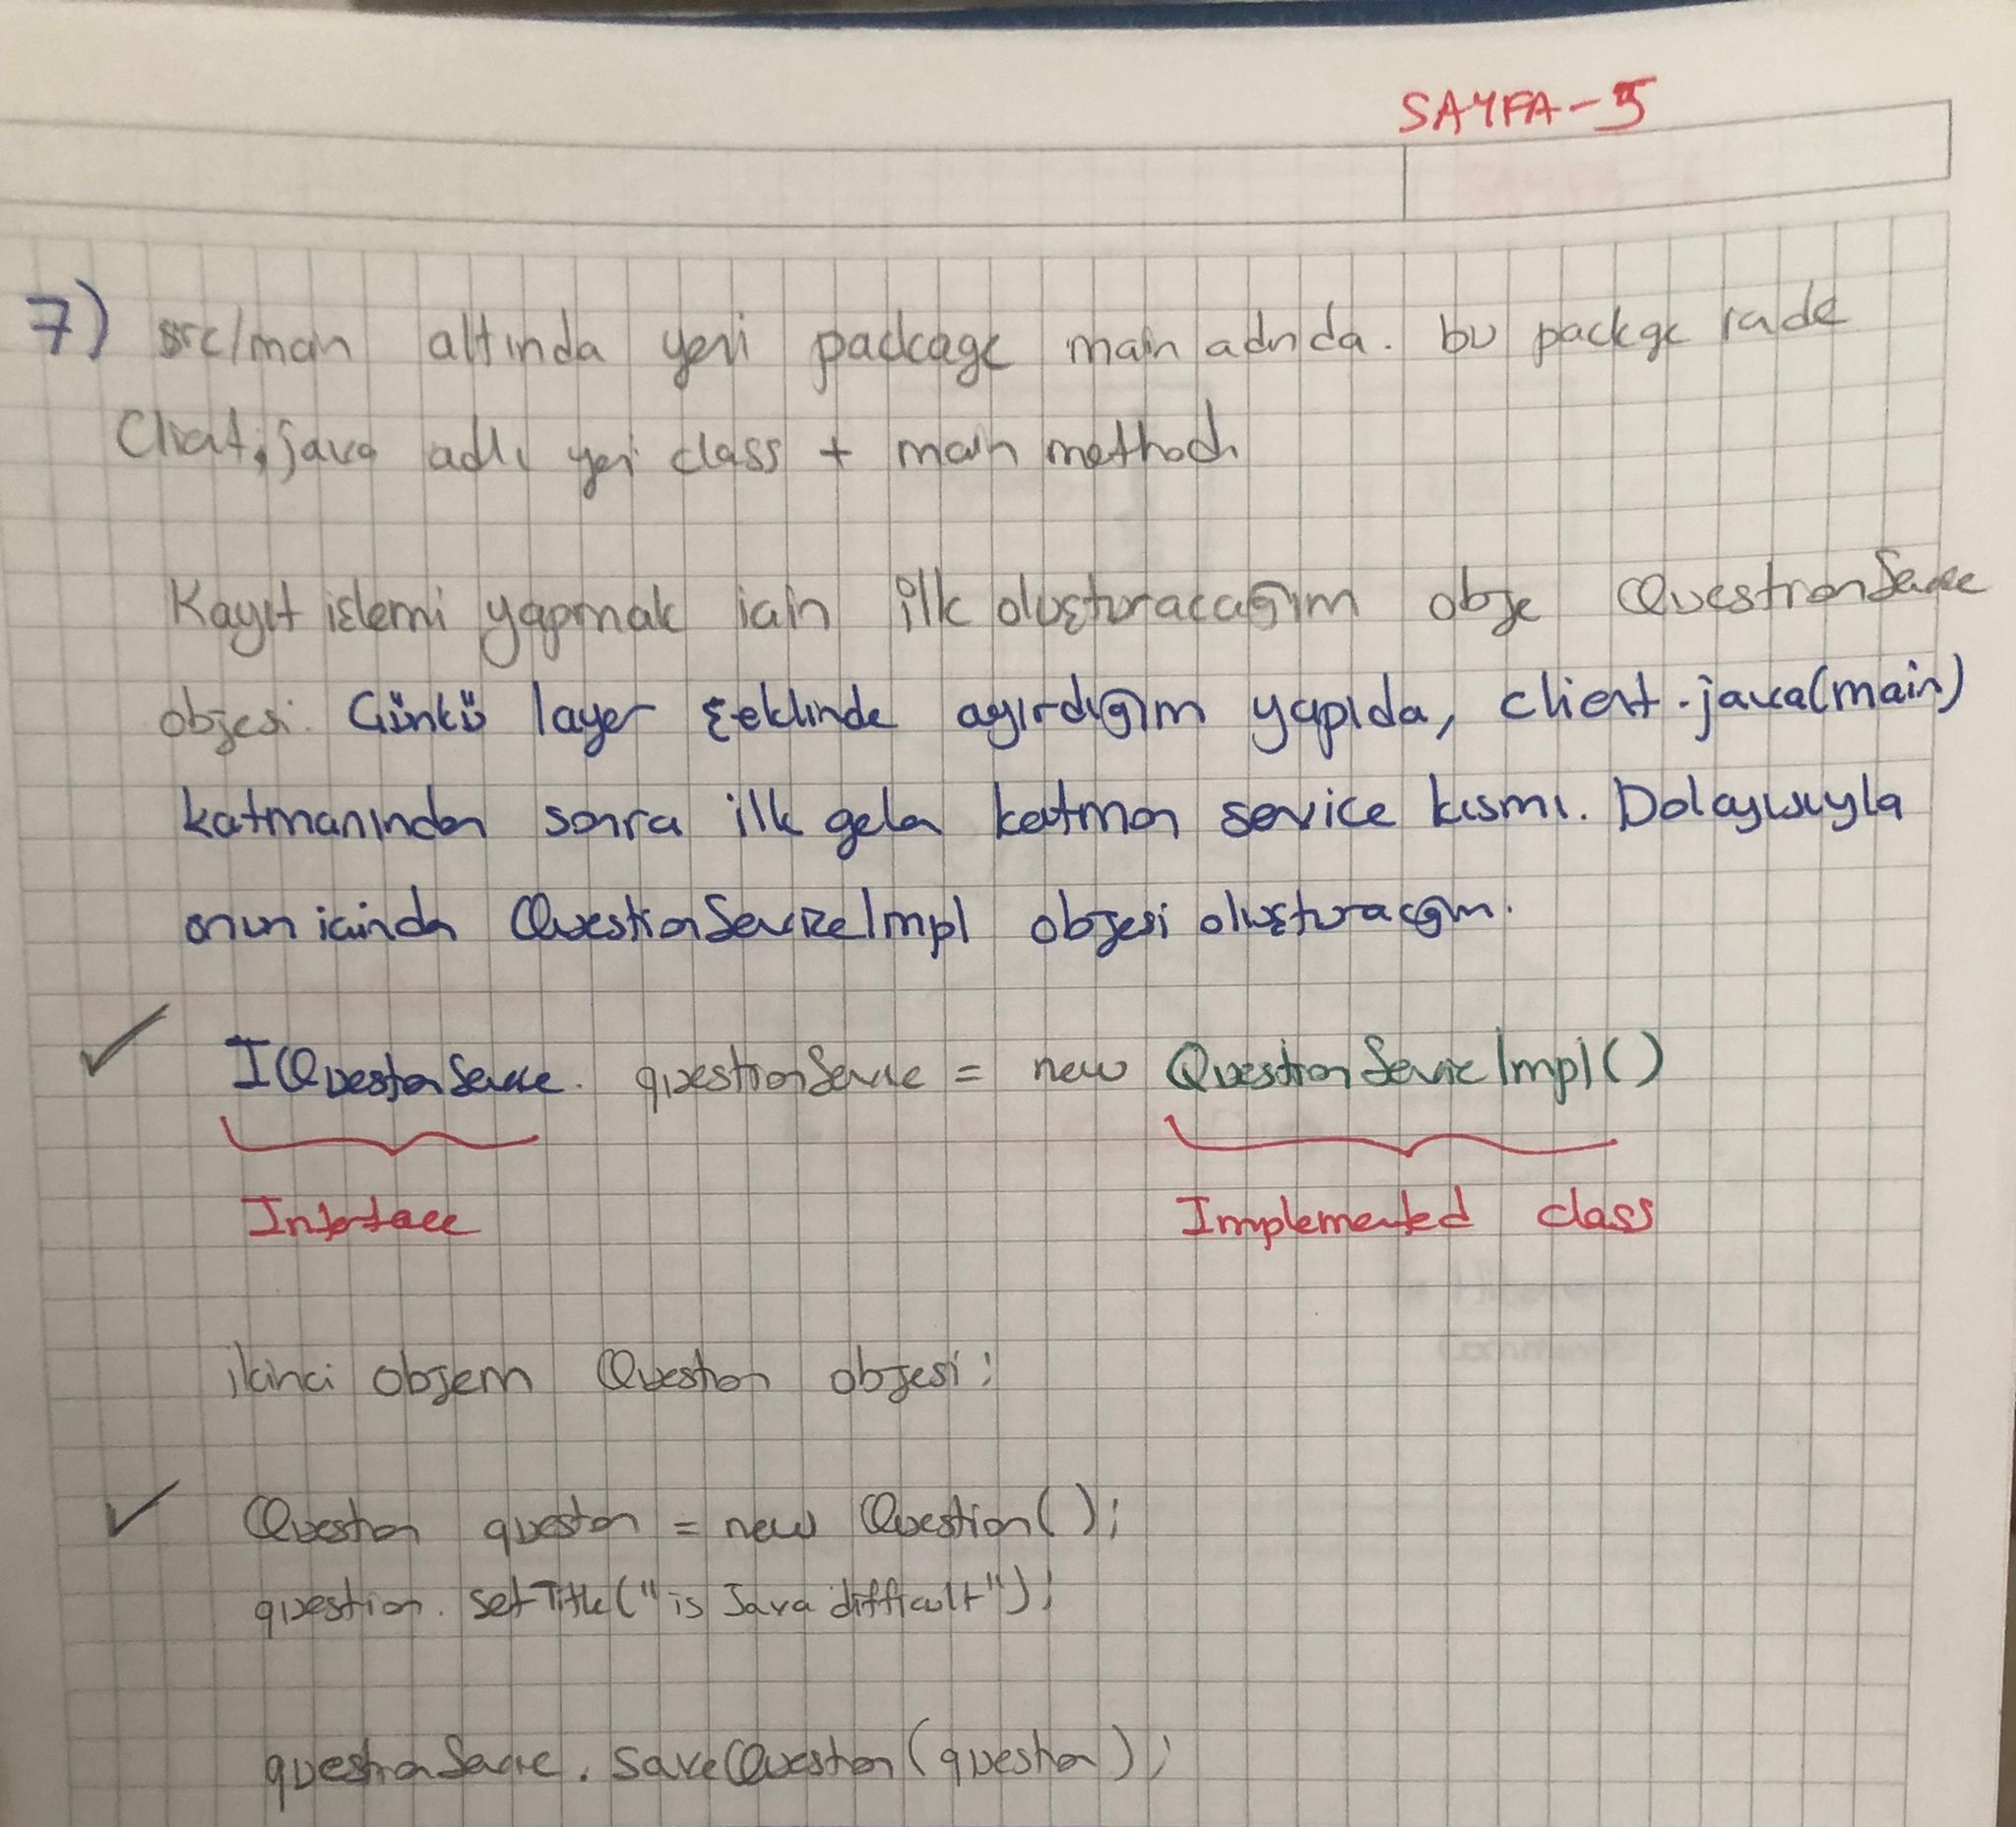 SAYFA-5
7) src/main altında yeni package main adında. bu packge içinde
Client.java adlı yeni class + main method
Kayıt işlemi yapmak için ilk oluşturacağım obje QuestionService
objesi. Çünkü layer şeklinde ayırdığım yapıda, client.java(main)
katmanından sonra ilk gelen katman service kısmı. Dolayısıyla
onun içinden QuestionServiceImpl objesi oluşturacağım.
✓ IQuestionService questionService = new QuestionServiceImpl()
Interface Implemented class
ikinci objem Question objesi;
✓ Question question = new Question();
question.setTitle("is Java difficult");
questionService.saveQuestion(question);